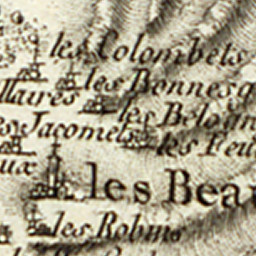 les Colombets
les Bonnesq
llaires
les Belogn
es Jacomets
les Feu
ux
les Beau
les Robins